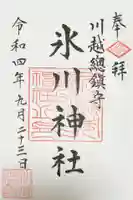 奉拝
川越總鎮守
氷川神社
令和四年九月二十三日